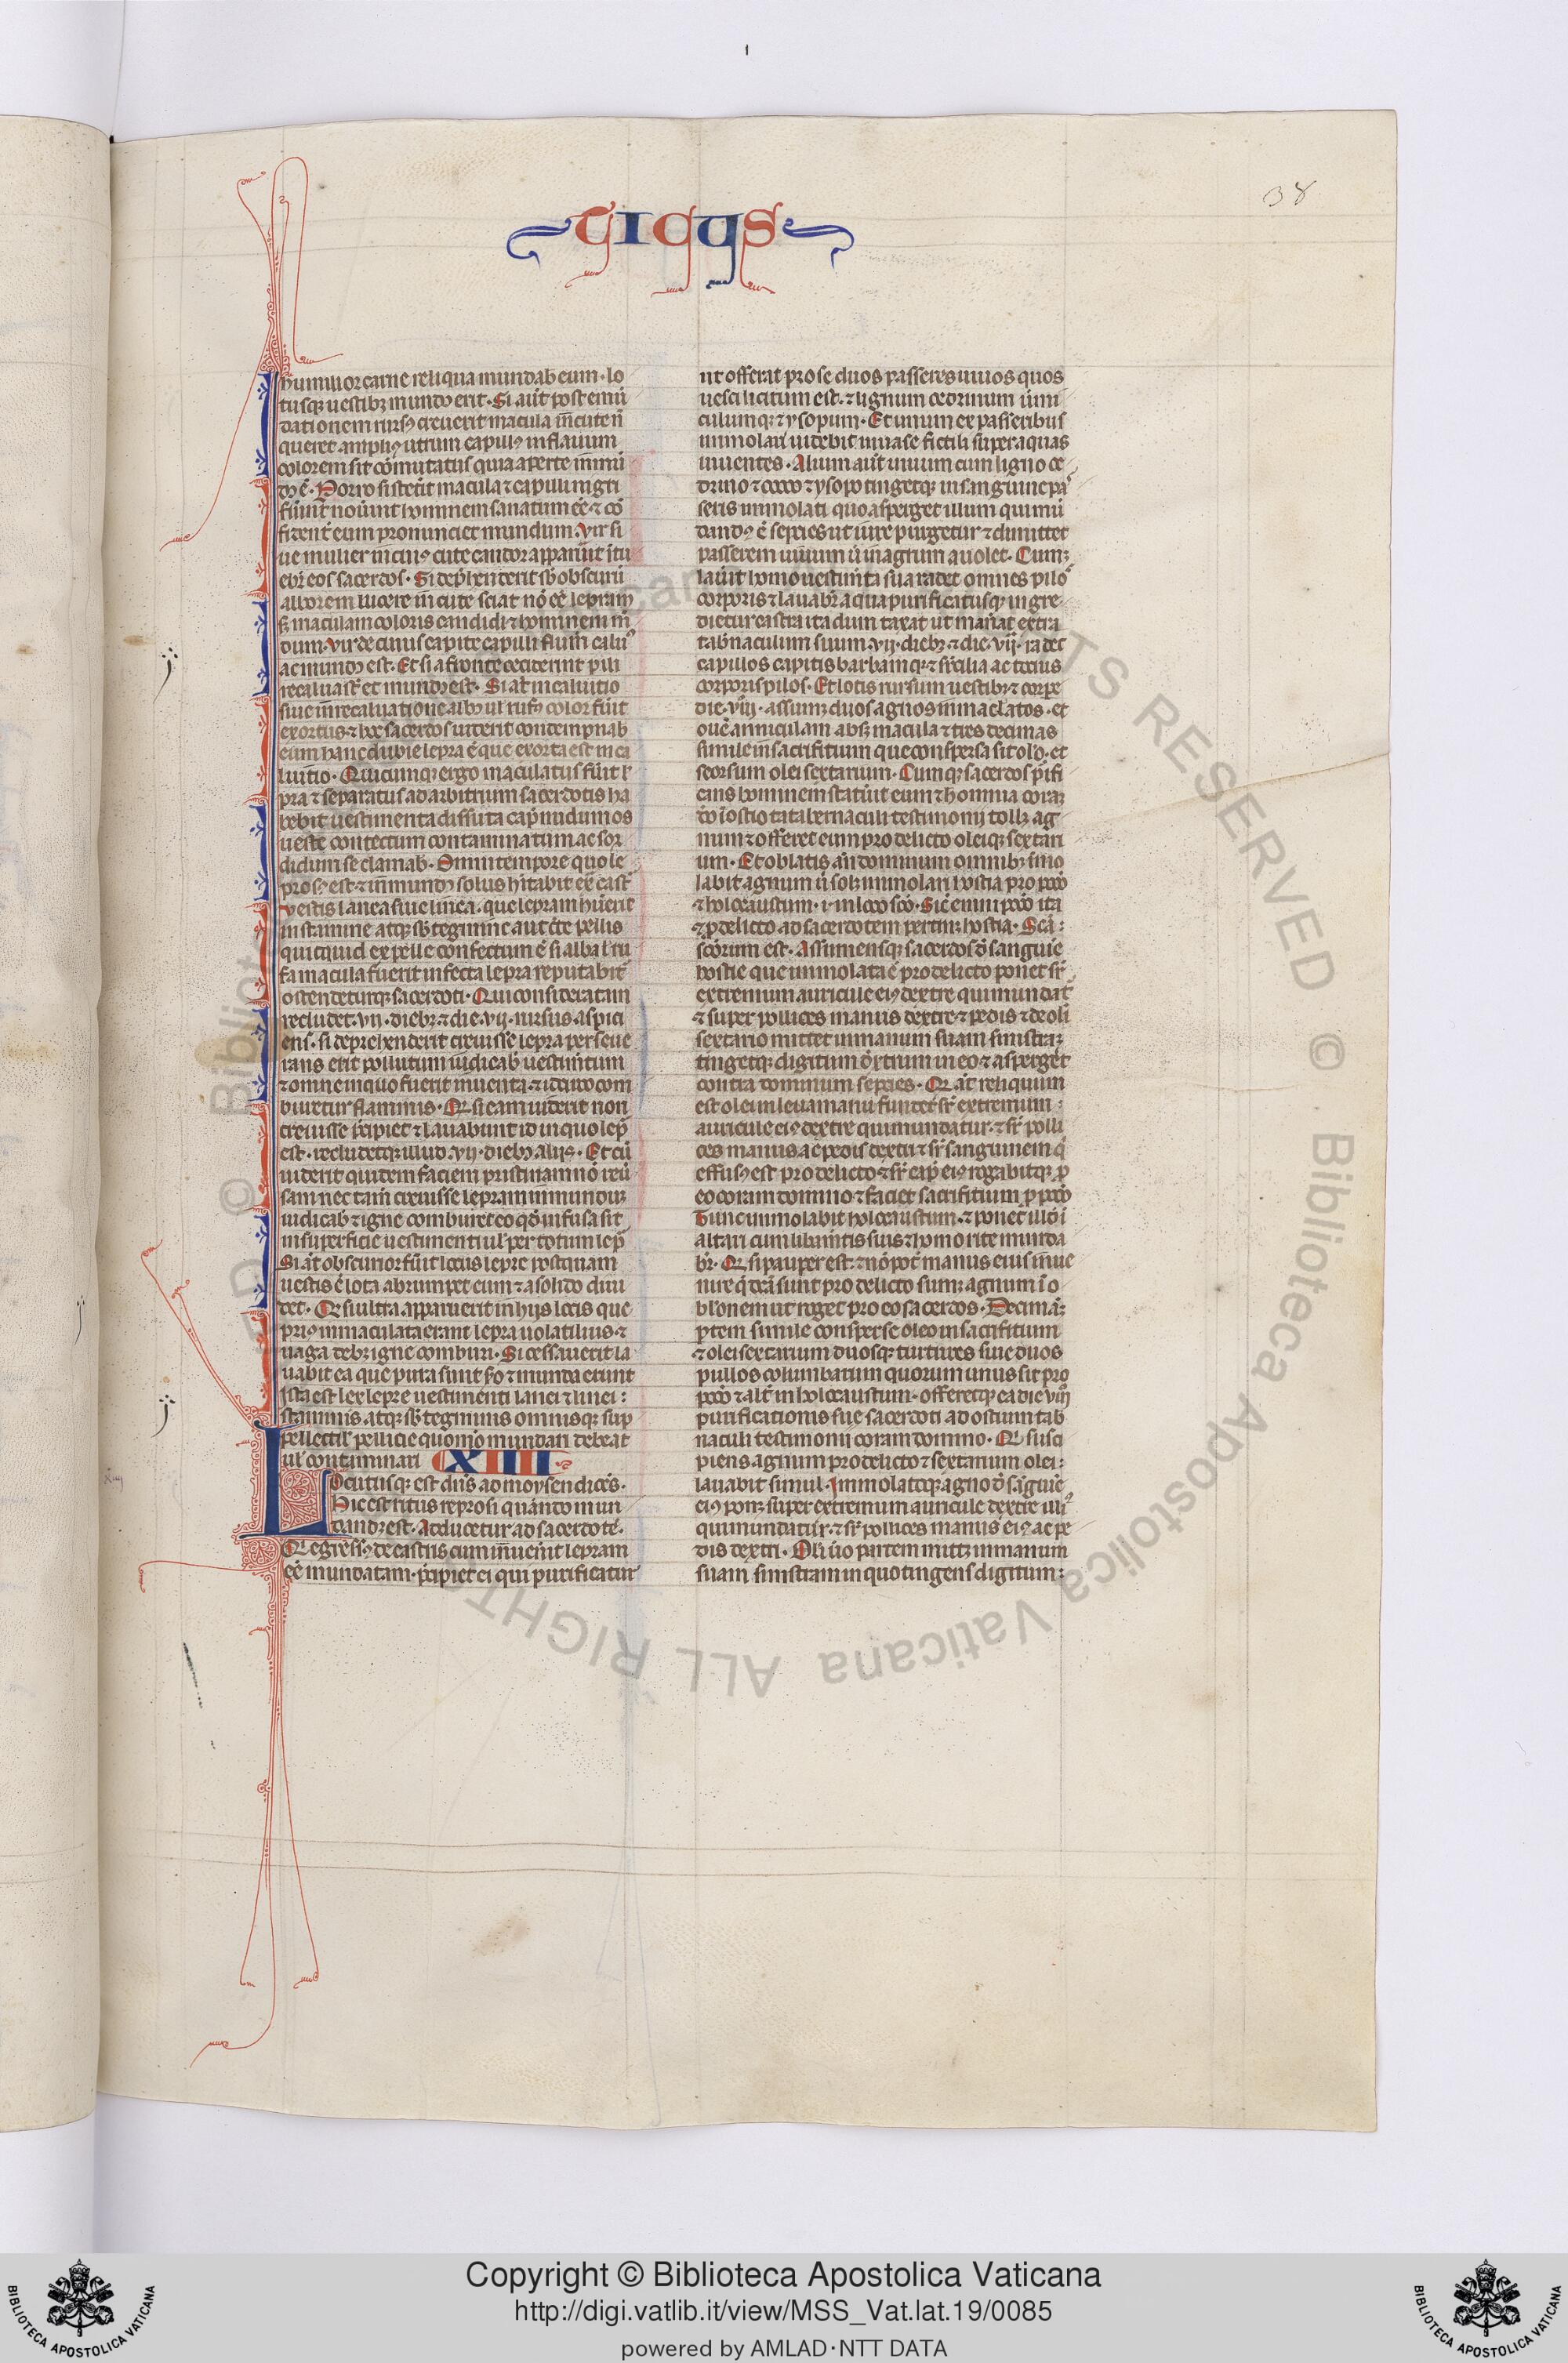 38
TICUS
humilior carne reliqua mundab eum · lo
tusq; uestibz mundus erit · Si aut post emū
dationem rursus creuerit macula in cute nō
queret amplius utrum capillus in flauum
colorem sit cōmutatus quia aperte inmū
dus ē · Porro si steterit macula et capilli nigri
fuerint nouerit hominem sanatum eē et cō
fidenter eum pronunciet mundum. Vir si
ue mulier in cuius cute candor apparuerit ītu
ebr eos sacerdos · Si depͥhenderit sb obscurū
alborem lucere in cute sciat nō eē lepram
s; maculam coloris candidi et hominem mū
dum. Vir de cuius capite capilli fluunt caluus
ac mundus est. Et si a fronte ceciderint pili
recaluaster et mundus est. Si aut in caluitio
siue in recaluatione albus ul rufus color fuit
exortus et hoc sacerdos uiderit contempnab
eum haut dubie lepra ē que exorta est in ca
luitio. Quicumq; ergo maculatus fuit le
pra et separatus ad arbitrium sacerdotis ha
bebit uestimenta dissuta cap nudum os
ueste contectum contaminatum ac sor
didum se clamab. Omni tempore quo le
prosus est et inmundus solus habitabit ext cast
Vestis lanea siue linea. que lepram habuerit
in stamine atq; sb tegmine aut certe pellis
quicquid ex pelle confectum ē si alba ul ru
fa macula fuerit infecta lepra reputabit
ostendeturq; sacerdoti. Qui consideratam
recludet. vij. diebz et die. vij. rursus aspici
ens. si deprehenderit creuisse lepra perseue
rans erit pollutum iudicab uestimtum
et omne in quo fuerit inuenta. et idcirco com
buretur flammis. Qd si eam uiderit non
creuisse p̄cipiet et lauabunt id in quo lep̄
est. recludetq; illud. vij. diebz alijs. Et cū
uiderit quidem faciem pristinam nō reū
sam nec tam creuisse lepram inmunduz
iudicab et igne comburet eo qd infusa sit
in superficie uestimenti ul per totum lep̄
Si at obscurior fuit locus lepre postquam
uestis ē lota abrumpet eum et a solido diui
det. Qd si ultra apparuerit in hijs locis que
prius inmaculata erant lepra uolatilius et
uaga debz igne comburi. Si cessauerit la
uabit ea que pura sunt sco et munda erunt
ista est lex lepre uestimenti lanei et linei:
staminis atq; sb tegminis omnisq; sup
pellectil pellicie quomo mundari debeat
ul contaminari XIIII
Locutusq; est dns ad moysen dicēs.
Hic est ritus leprosi quando mun
dandus est. Adducetur ad sacerdotē.
Qi egressus de castris cum inuenit lepram
eē mundatam. p̄cipiet ei qui purificatur
ut offerat pro se duos passeres uiuos quos
uesci licitum est. et lignum cedrinum ūmi
culumq; et ysopum. Et unum ex passeribus
immolari iubebit in uase fictili super aquas
uiuentes. Alium aut uiuum cum ligno ce
drino et cocco et ysopo tinget q; in sanguine pas
seris immolati quo asperget illum qui mū
dandus ē sepcies ut iure purgetur et dimittet
passerem uiuum ut in agrum auolet. Cumq;
lauit homo uestimta sua radet omnes pilos
corporis et lauabr aqua purificatusq; ingre
dietur castra ita dum taxat ut maneat extra
tabnaculum suum. vij. diebz et die. vij. radet
capillos capitis barbamq; et scilia ac tocius
corporis pilos. Et lotis rursum uestibz et corpe
die. viij. assumz duos agnos inmaclatos. et
ouē anniculam absq; macula et tres decimas
simile in sacrifitium que conspersa sit oleo. et
seorsum olei sextarium. Cumq; sacerdos p̄ifi
cans hominem statuit eum et h omnia coraz
dō ī ostio tabernaculi testimonij tollz ag
num et offeret eum pro delicto oleiq; sextari
um. Et oblatis añ dominum omnibz īmo
labit agnum ū solz immolari hostia pro pcco
et holocaustum. i. in loco sco. Sic enim pcco ita
et p delicto ad sacerdotem pertinz hostia. Scā:
scorum est. Assumensq; sacerdos d sanguine
hostie que immolata ē pro delicto ponet sr
extremum auricule eius dextre qui mundat
et super pollices manus dextre et pedis et de oli
sextario mittet in manum suam sinistraz
tingetq; digitum dxtrum in eo et asperget
contra dominum sepcies. Qd at reliquum
est olei in leua manu fundet sr extremum
auricule eius dextre qui mundatur. et sr polli
ces manus ac pedis dextri et sr sanguinem q
effusus est pro delicto et sr cap eius rogabitq; p
eo coram domino et faciet sacrifitium p pcco
Tunc immolabit holocaustum. et ponet illd ī
altari cum libamtis suis et homo rite munda
br. Qd si pauper est. et nō pot manus eius inue
nire q dcā sunt pro delicto sumz agnum ī o
blonem ut roget pro eo sacerdos. Decimāqz
ptem simile consperse oleo in sacrifitium
et olei sextarium duosq; turtures siue duos
pullos columbarum quorum unus sit pro
pcco et alt in holocaustum. offeretq; ea die viij
purificationis sue sacerdoti ad ostium tab
naculi testimonij coram domino. Qi susci
piens agnum pro delicto et sextarium olei:
lauabit simul. Immolatoq; agno d sanguie
eius ponz super extremum auricule dextre illi
qui mundatur. et sr pollices manus eius ac pe
dis dextri. Oli uo partem mittz in manum
suam sinistram in quo tingens digitum:
Copyright © Biblioteca Apostolica Vaticana
http://digi.vatlib.it/view/MSS_Vat.lat.19/0085
powered by AMLAD·NTT DATA